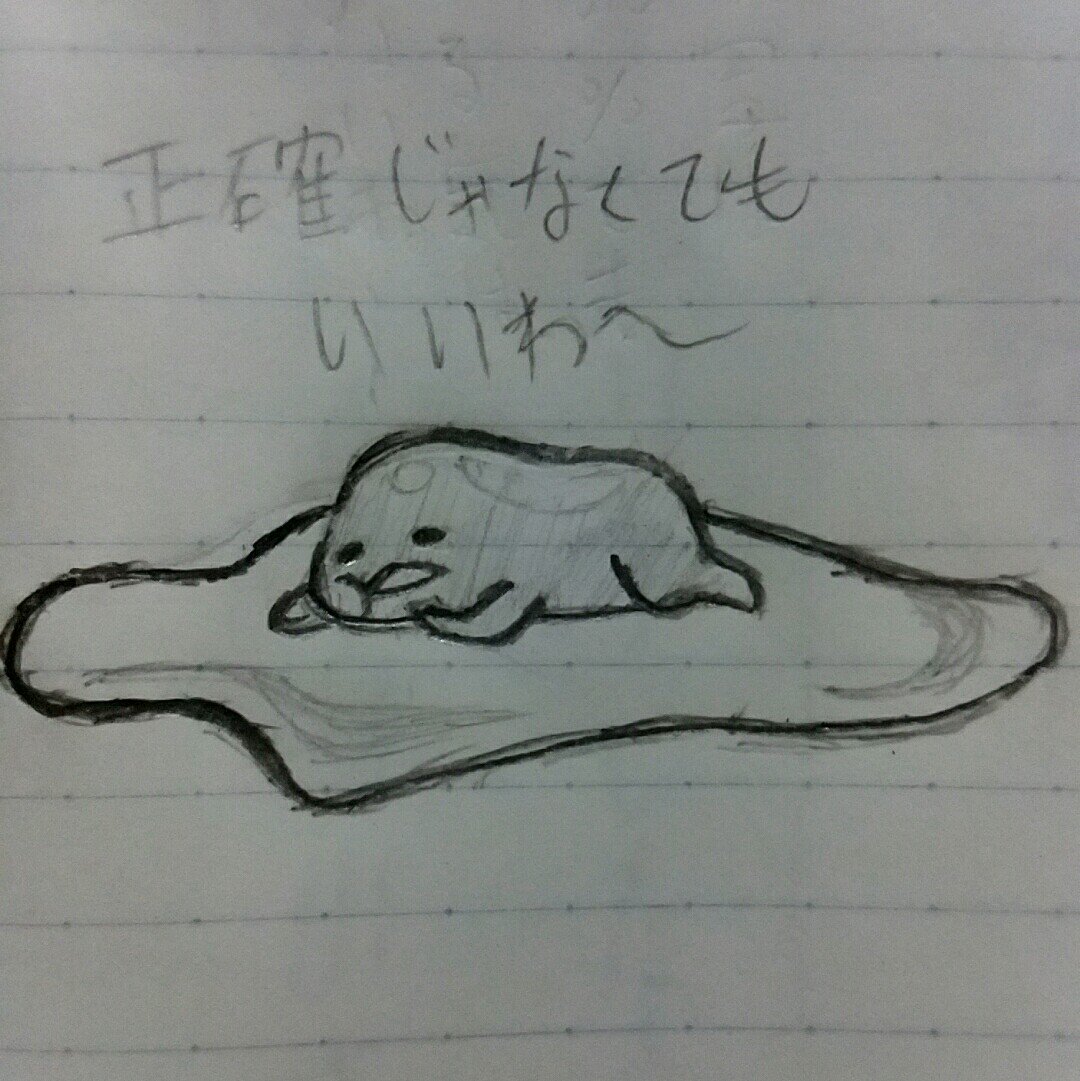 正確じゃなくても
いいわ〜